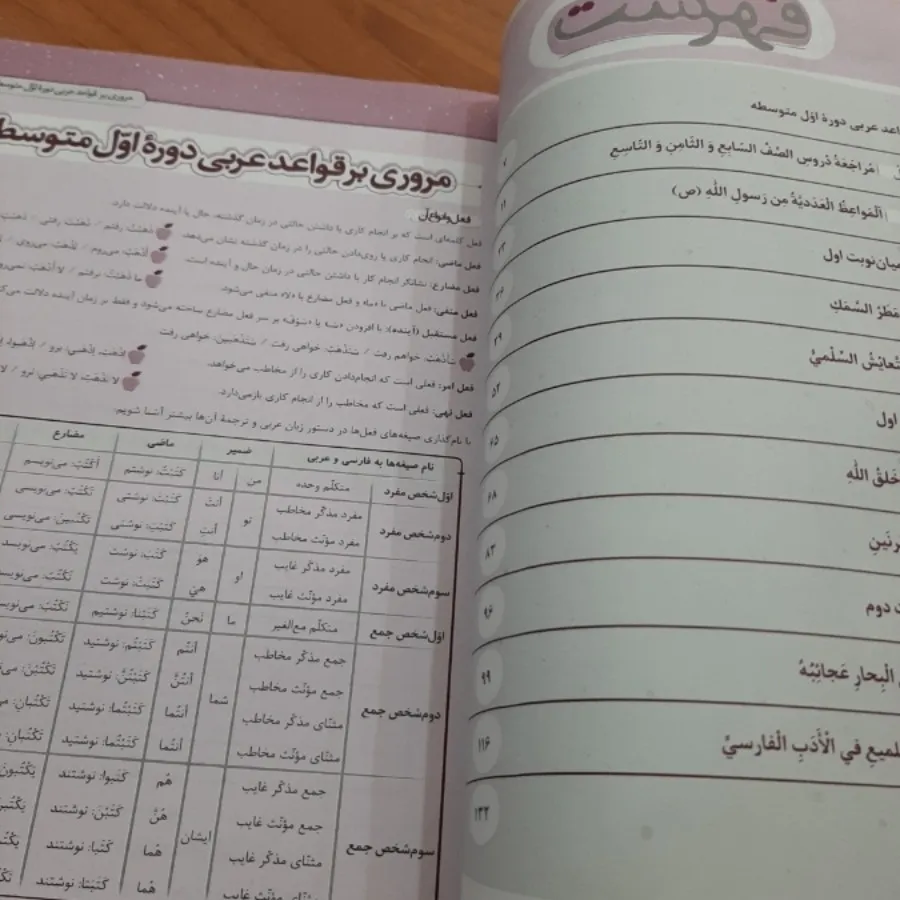 فهرست
اعد عربی دورهٔ اوّل متوسطه
مُراجَعَةُ دُروسِ الصَّفِّ السّابِعِ وَ الثّامِنِ وَ التّاسِعِ ۷
اَلْمَواعِظُ الْعَدَديَّةُ مِن رَسولِ اللّٰهِ (ص) ۱۱
میان‌نوبت اول ۲۳
مَطَرُ السَّمَكِ ۲۶
تَّعايُشُ السِّلْميُّ ۳۹
اول ۵۲
خَلقُ اللّٰهِ ۶۵
۶۸
رنَينِ ۸۳
ت دوم ۹۶
الْبِحارِ عَجائِبُهُ ۹۹
لميعِ في الْأَدَبِ الْفارسيِّ ۱۱۶
۱۳۲
مروری بر قواعد عربی دورهٔ اوّل متوسطه
مروری بر قواعد عربی دورهٔ اوّل متوسطه
فعل و انواع آن
فعل کلمه‌ای است که بر انجام کاری یا داشتن حالتی در زمان گذشته، حال یا آینده دلالت دارد.
فعل ماضی: انجام کاری یا روی‌دادن حالتی را در زمان گذشته نشان می‌دهد. ذَهَبْتُ: رفتم // ذَهَبْتَ: رفتی //
فعل مضارع: نشانگر انجام کار یا داشتن حالتی در زمان حال و آینده است. أَذْهَبُ: می‌روم // تَذْهَبُ: می‌روی //
فعل منفی: فعل ماضی با «ما» و فعل مضارع با «لا» منفی می‌شود. ما ذَهَبْتُ: نرفتم // لا أَذْهَبُ: نمی‌رو
فعل مستقبل (آینده): با افزودن «سَـ» یا «سَوْفَ» بر سر فعل مضارع ساخته می‌شود و فقط بر زمان آینده دلالت می‌ک
سَأَذْهَبُ: خواهم رفت // سَتَذْهَبُ: خواهی رفت // سَتَذْهَبينَ: خواهی رفت
فعل امر: فعلی است که انجام‌دادن کاری را از مخاطب می‌خواهد. اِذْهَبْ، اِذْهَبي: برو //
فعل نهی: فعلی است که مخاطب را از انجام کاری بازمی‌دارد. لا تَذْهَبْ، لا تَذْهَبي: نرو //
با نام‌گذاری صیغه‌های فعل‌ها در دستور زبان عربی و ترجمهٔ آن‌ها بیشتر آشنا شویم.
نام صیغه‌ها به فارسی و عربی ضمیر ماضی مضارع
اوّل شخص مفرد متکلّم وحده من أنا كَتَبْتُ: نوشتم أَكْتُبُ: می‌نویسم
دوم‌شخص مفرد مفرد مذکّر مخاطب تو أنتَ كَتَبْتَ: نوشتی تَكْتُبُ: می‌نویسی
مفرد مؤنّث مخاطب أنتِ كَتَبْتِ: نوشتی تَكْتُبينَ: می‌نویسی
سوم‌شخص مفرد مفرد مذکّر غایب او هوَ كَتَبَ: نوشت يَكْتُبُ: می‌نویسد
مفرد مؤنّث غایب هيَ كَتَبَتْ: نوشت تَكْتُبُ: می‌نویسد
اوّل‌شخص جمع متکلّم مع‌الغیر ما نَحنُ كَتَبْنا: نوشتیم نَكْتُبُ: می‌نویس
دوم‌شخص جمع جمع مذکّر مخاطب شما أنتُم كَتَبْتُم: نوشتید تَكْتُبونَ: می‌نو
جمع مؤنّث مخاطب أنتُنَّ كَتَبْتُنَّ: نوشتید تَكْتُبْنَ: می‌نو
مثنّای مذکّر مخاطب أنتُما كَتَبْتُما: نوشتید تَكْتُبانِ: م
مثنّای مؤنّث مخاطب أنتُما كَتَبْتُما: نوشتید تَكْتُبانِ:
سوم‌شخص جمع جمع مذکّر غایب ایشان هُم كَتَبوا: نوشتند يَكْتُبونَ
جمع مؤنّث غایب هُنَّ كَتَبْنَ: نوشتند
مثنّای مذکّر غایب هُما كَتَبا: نوشتند
مثنّای مؤنّث غایب هُما كَتَبَتا: نوشتند